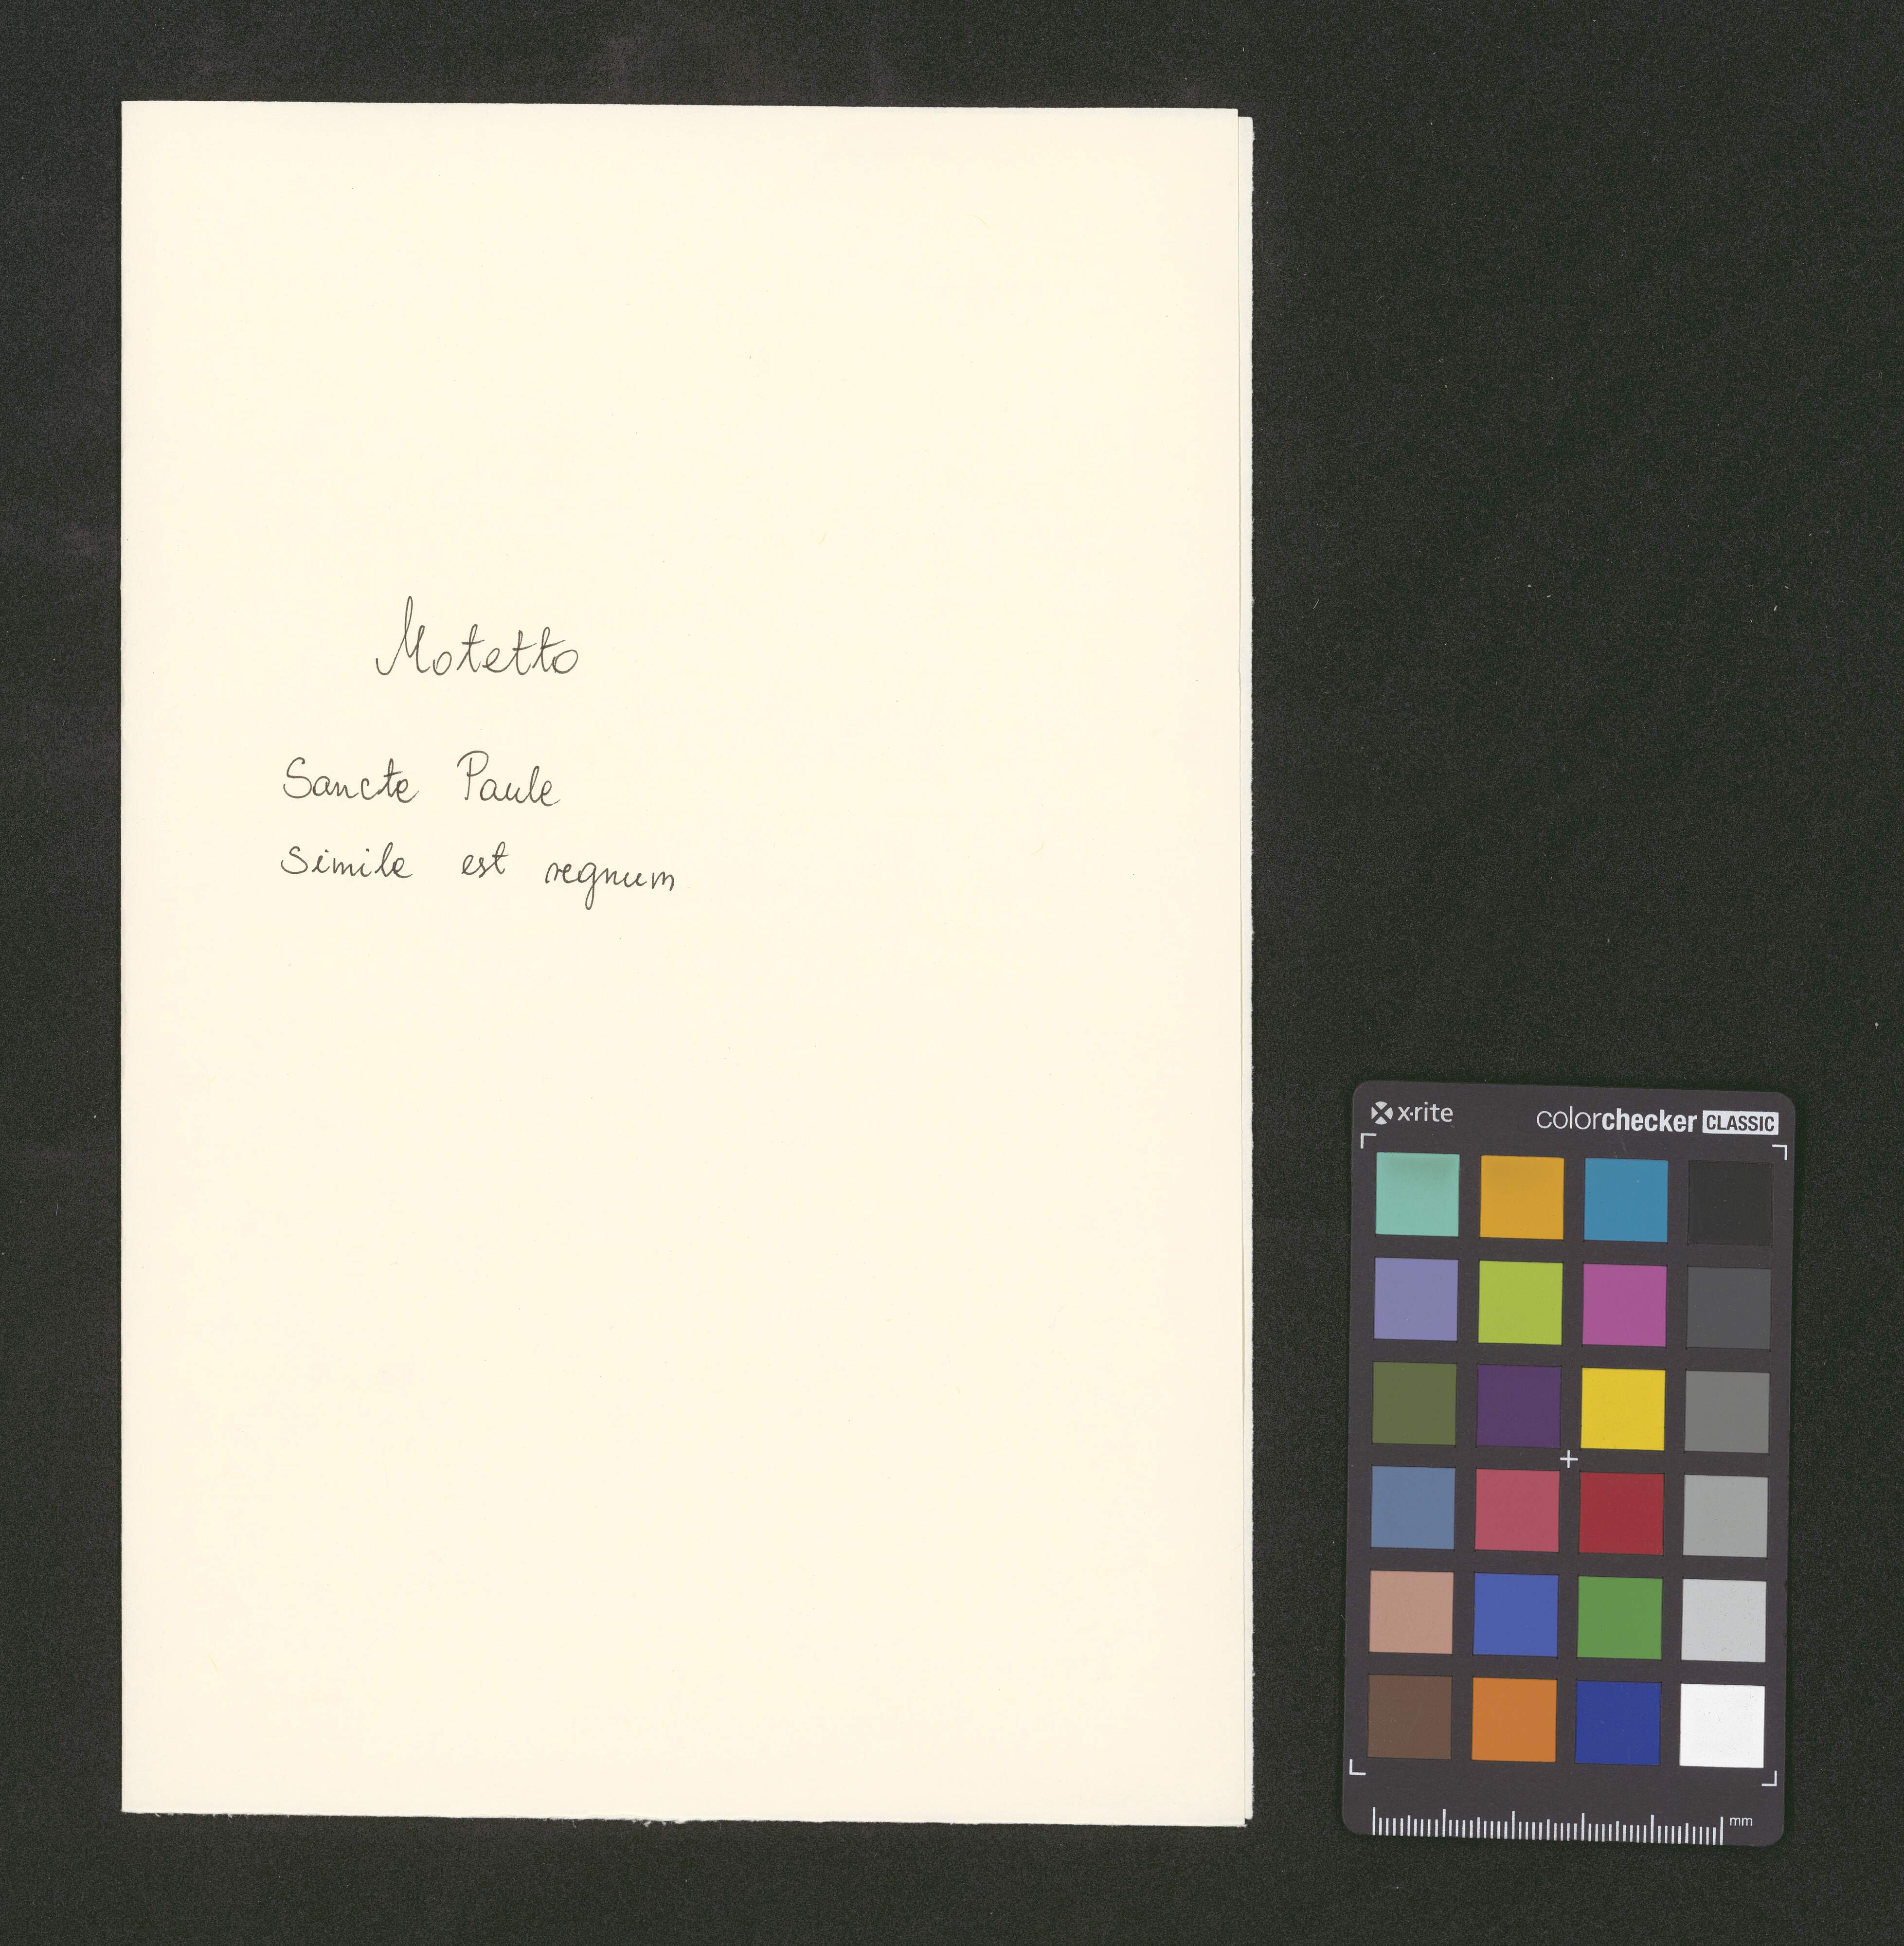 Motetto
Sancte Paule
Simile est regnum
x·rite colorchecker CLASSIC
mm